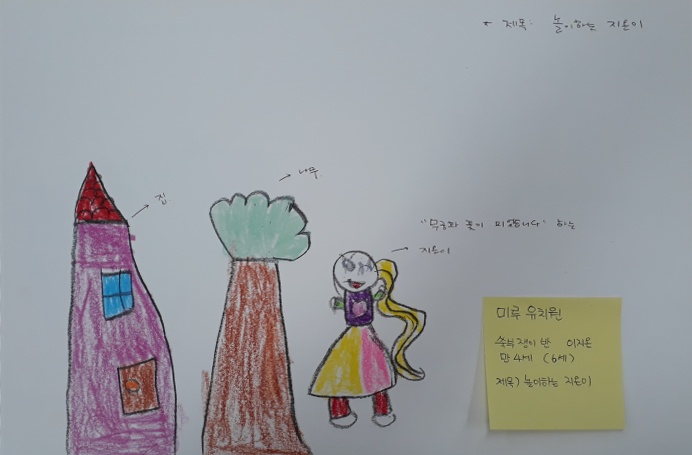 * 제목: 놀이하는 지은이
나무
집
"무궁화 꽃이 피었습니다" 하는
지은이
미루 유치원
반 이지은
만 4세 (6세)
제목) 놀이하는 지은이